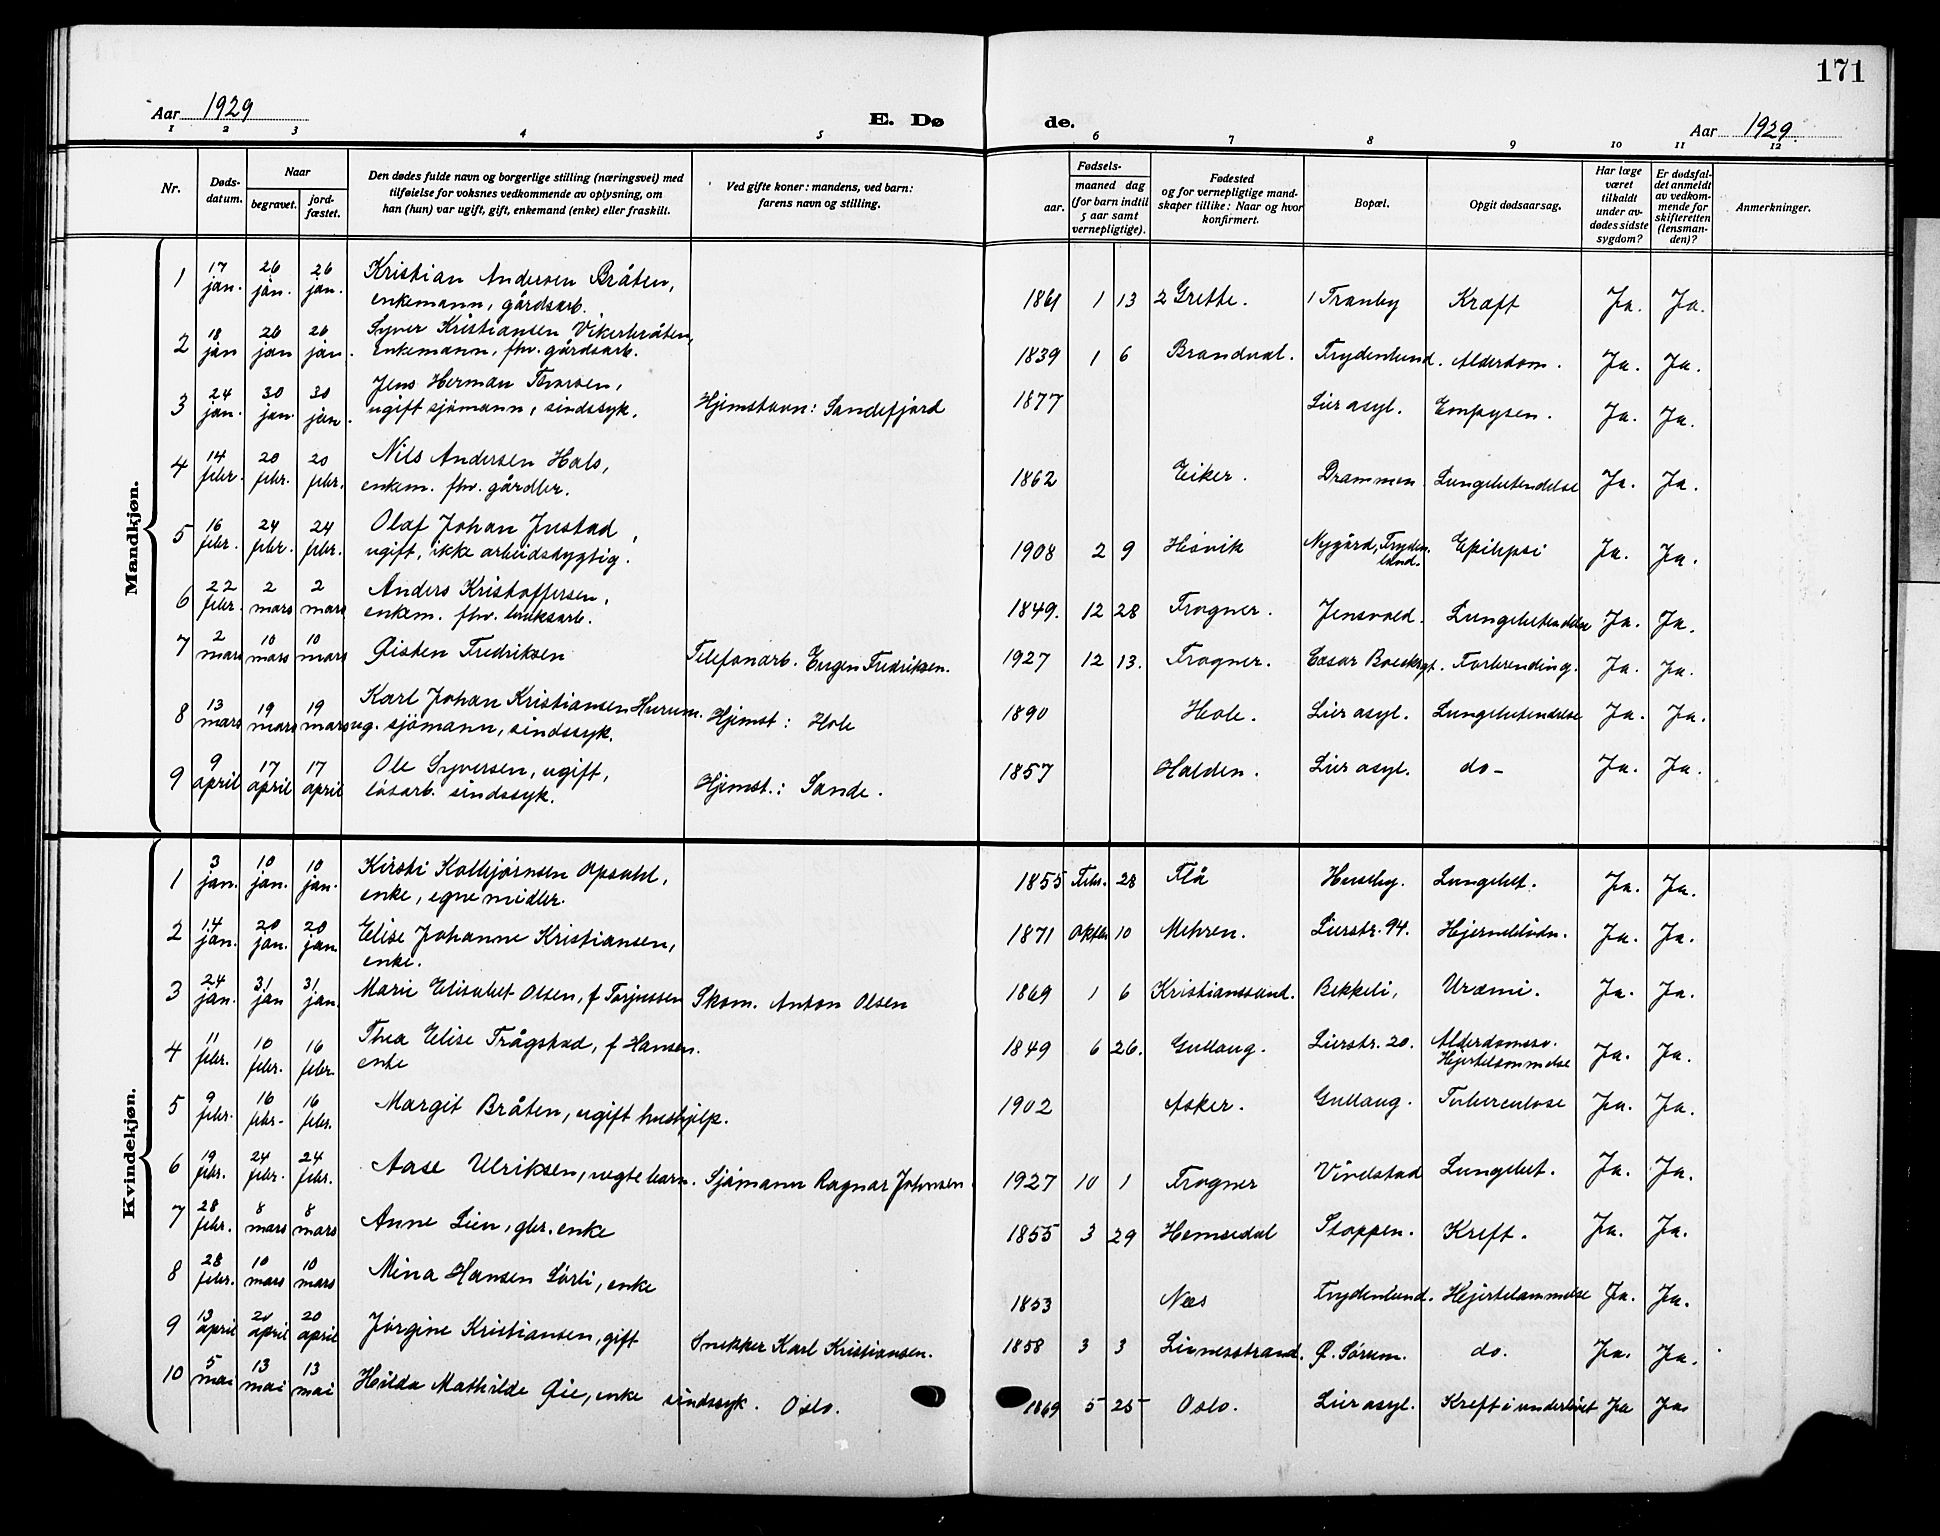 171
Aar 1929
E. Dø
de.
Aar 1929.
1 2 3 4 5 6 7 8 9 10 11 12
Nr.
Døds-
datum.
Naar
begravet.
jord-
fæstet.
Den dødes fulde navn og borgerlige stilling (næringsvei) med
tilføielse for voksnes vedkommende av oplysning, om
han (hun) var ugift, gift, enkemand (enke) eller fraskilt.
Ved gifte koner: mandens, ved barn:
farens navn og stilling.
Fødsels-
aar.
maaned dag
(for barn indtil
5 aar samt
vernepligtige).
Fødested
og for vernepligtige mand-
skaper tillike: Naar og hvor
konfirmert.
Bopæl.
Opgit dødsaarsag.
Har læge
været
tilkaldt
under av-
dødes sidste
sygdom?
Er dødsfal-
det anmeldt
av vedkom-
mende for
skifteretten
(lensman-
den)?
Anmerkninger.
Mandkjøn.
1 17 jan. 26 jan. 26 jan. Kristian Andersen Bråten,
enkemann, gårdsarb. 1861 1 13 Grette. Tranby Kræft Ja. Ja.
2 18 jan 26 jan 26 jan. Syver Kristiansen Vikerbråten,
enkemann, fhv. gårdsarb. 1839 1 6 Brandval. Frydenlund. Alderdom. Ja. Ja.
3 24 jan. 30 jan. 30 jan. Jens Herman Thorsen,
ugift sjømann, sindssyk. Hjemstavn: Sandefjord 1877 Lier asyl. Empysen. Ja. Ja.
4 14 febr. 20 febr. 20 febr. Nils Andersen Hals,
enkem. fhv. gårdbr. 1862 Eiker. Drammen Lungebetendelse Ja. Ja.
5 16 febr. 24 febr. 24 febr. Olaf Johan Justad,
ugift, ikke arbeidsdygtig. 1908 2 9 Høvik Nygård, Fryden-
lund. Epilepsi Ja. Ja.
6 22 febr. 2 mars 2 mars Anders Kristoffersen,
enkem. fhv. bruksarb. 1849. 12 28 Frogner. Jensvold. Lungebetendelse Ja. Ja.
7 2 mars 10 mars 10 mars Øisten Fredriksen Telefonarb. Eugen Fredriksen. 1927 12 13. Frogner. Cæsar Boeskgt. Forbrending. Ja. Ja.
8 13 mars 19 mars 19 mars Karl Johan Kristiansen Hurum.
ug. sjømann, sindssyk. Hjemst: Hole 1890 Hole. Lier asyl. Lungebetendelse Ja. Ja.
9 9 april 17 april 17 april Ole Syversen, ugift,
løsarb. sindssyk. Hjemst.: Sande. 1857 Halden. Lier asyl. do- Ja. Ja.
Kvindekjøn.
1 3 jan. 10 jan. 10 jan. Kirsti Kolbjørnsen Opsahl,
enke, egne midler. 1855 Febr. 28 Flå Huseby. Lungebet. Ja. Ja.
2 14 jan. 20 jan. 20 jan. Elise Johanne Kristiansen,
enke. 1871 Oktbr 10 Mehren. Lierstr. 94. Hjerneblødn. Ja. Ja.
3 24 jan. 31 jan 31 jan. Marie Elisabet Olsen, f Torjussen Skom. Anton Olsen 1869 1 6 Kristianssund. Bekkeli, Uræmi. Ja. Ja.
4 11 febr. 10 febr. 16 febr. Thea Elise Trågstad, f Hansen.
enke 1849 6 26. Gullaug. Lierstr. 20. Alderdomssv.
Hjertelammelse Ja. Ja.
5 9 febr. 16 febr- 16 febr. Margit Bråten, ugift hushjelp. 1902 Asker. Gullaug. Tuberculose Ja. Ja.
6 19 febr. 24 febr. 24 febr. Aase Ulriksen, uegte barn. Sjømann Ragnar Johnsen 1927 10 1 Frogner Vivelstad Lungebet. Ja. Ja.
7 28 febr. 8 mars 8 mars Anne Lien, gbr. enke 1855 3 29 Hemsedal Stoppen. Kreft. Ja. Ja.
8 28 febr. 10 mars 10 mars Mina Hansen Sørli, enke 1853 Næs Frydenlund. Hjertelammelse Ja. Ja.
9 13 april 20 april 20 april Jørgine Kristiansen, gift Snekker Karl Kristiansen. 1858 3 3 Linnesstrand. Ø. Sørum. do. Ja. Ja.
10 5 mai 13 mai 13 mai Hilda Mathilde Øie, enke sindssyk. Oslo. 1869 5 25 Oslo. Lier asyl. Kreft i underlivet Ja Ja